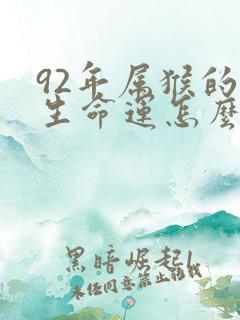 92年属猴的
生命运怎麽
黑暗崛起l
未任同意禁止转载